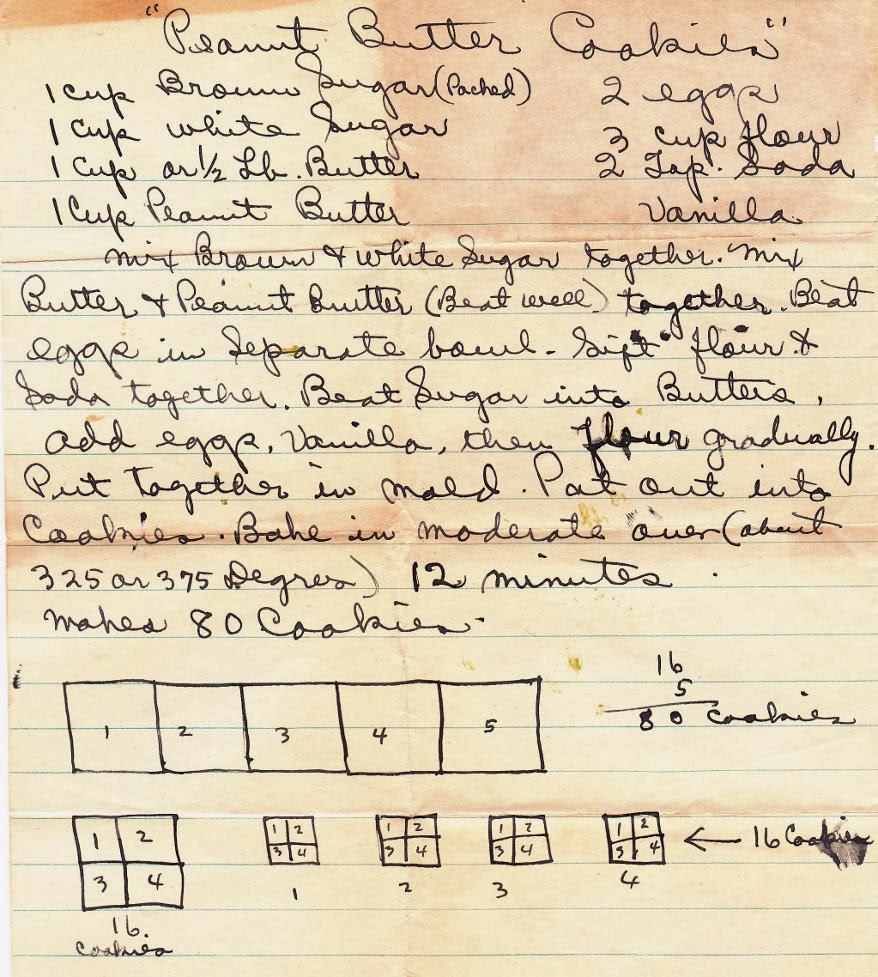 "Peanut Butter Cookies"
1 cup Brown Sugar (Packed) 2 eggs
1 Cup white Sugar 3 cup flour
1 Cup or 1/2 Lb. Butter 2 Tsp. Soda
1 Cup Peanut Butter Vanilla
Mix Brown & white Sugar together. Mix
Butter & Peanut Buttter (Beat well) together. Beat
eggs in Separate bowl - Sift flour &
Soda together. Beat Sugar into Butters,
add eggs, Vanilla, then flour gradually.
Put together in mold. Pat out into
Cookies. Bake in moderate oven (about
325 or 375 Degrees) 12 minutes
Makes 80 Cookies -
16
5
80 cookies
1 2 3 4 5
1 2 1 2 1 2 1 2 1 2 ← 16 Cookies
3 4 3 4 3 4 3 4 3 4
1 2 3 4
16
Cookies